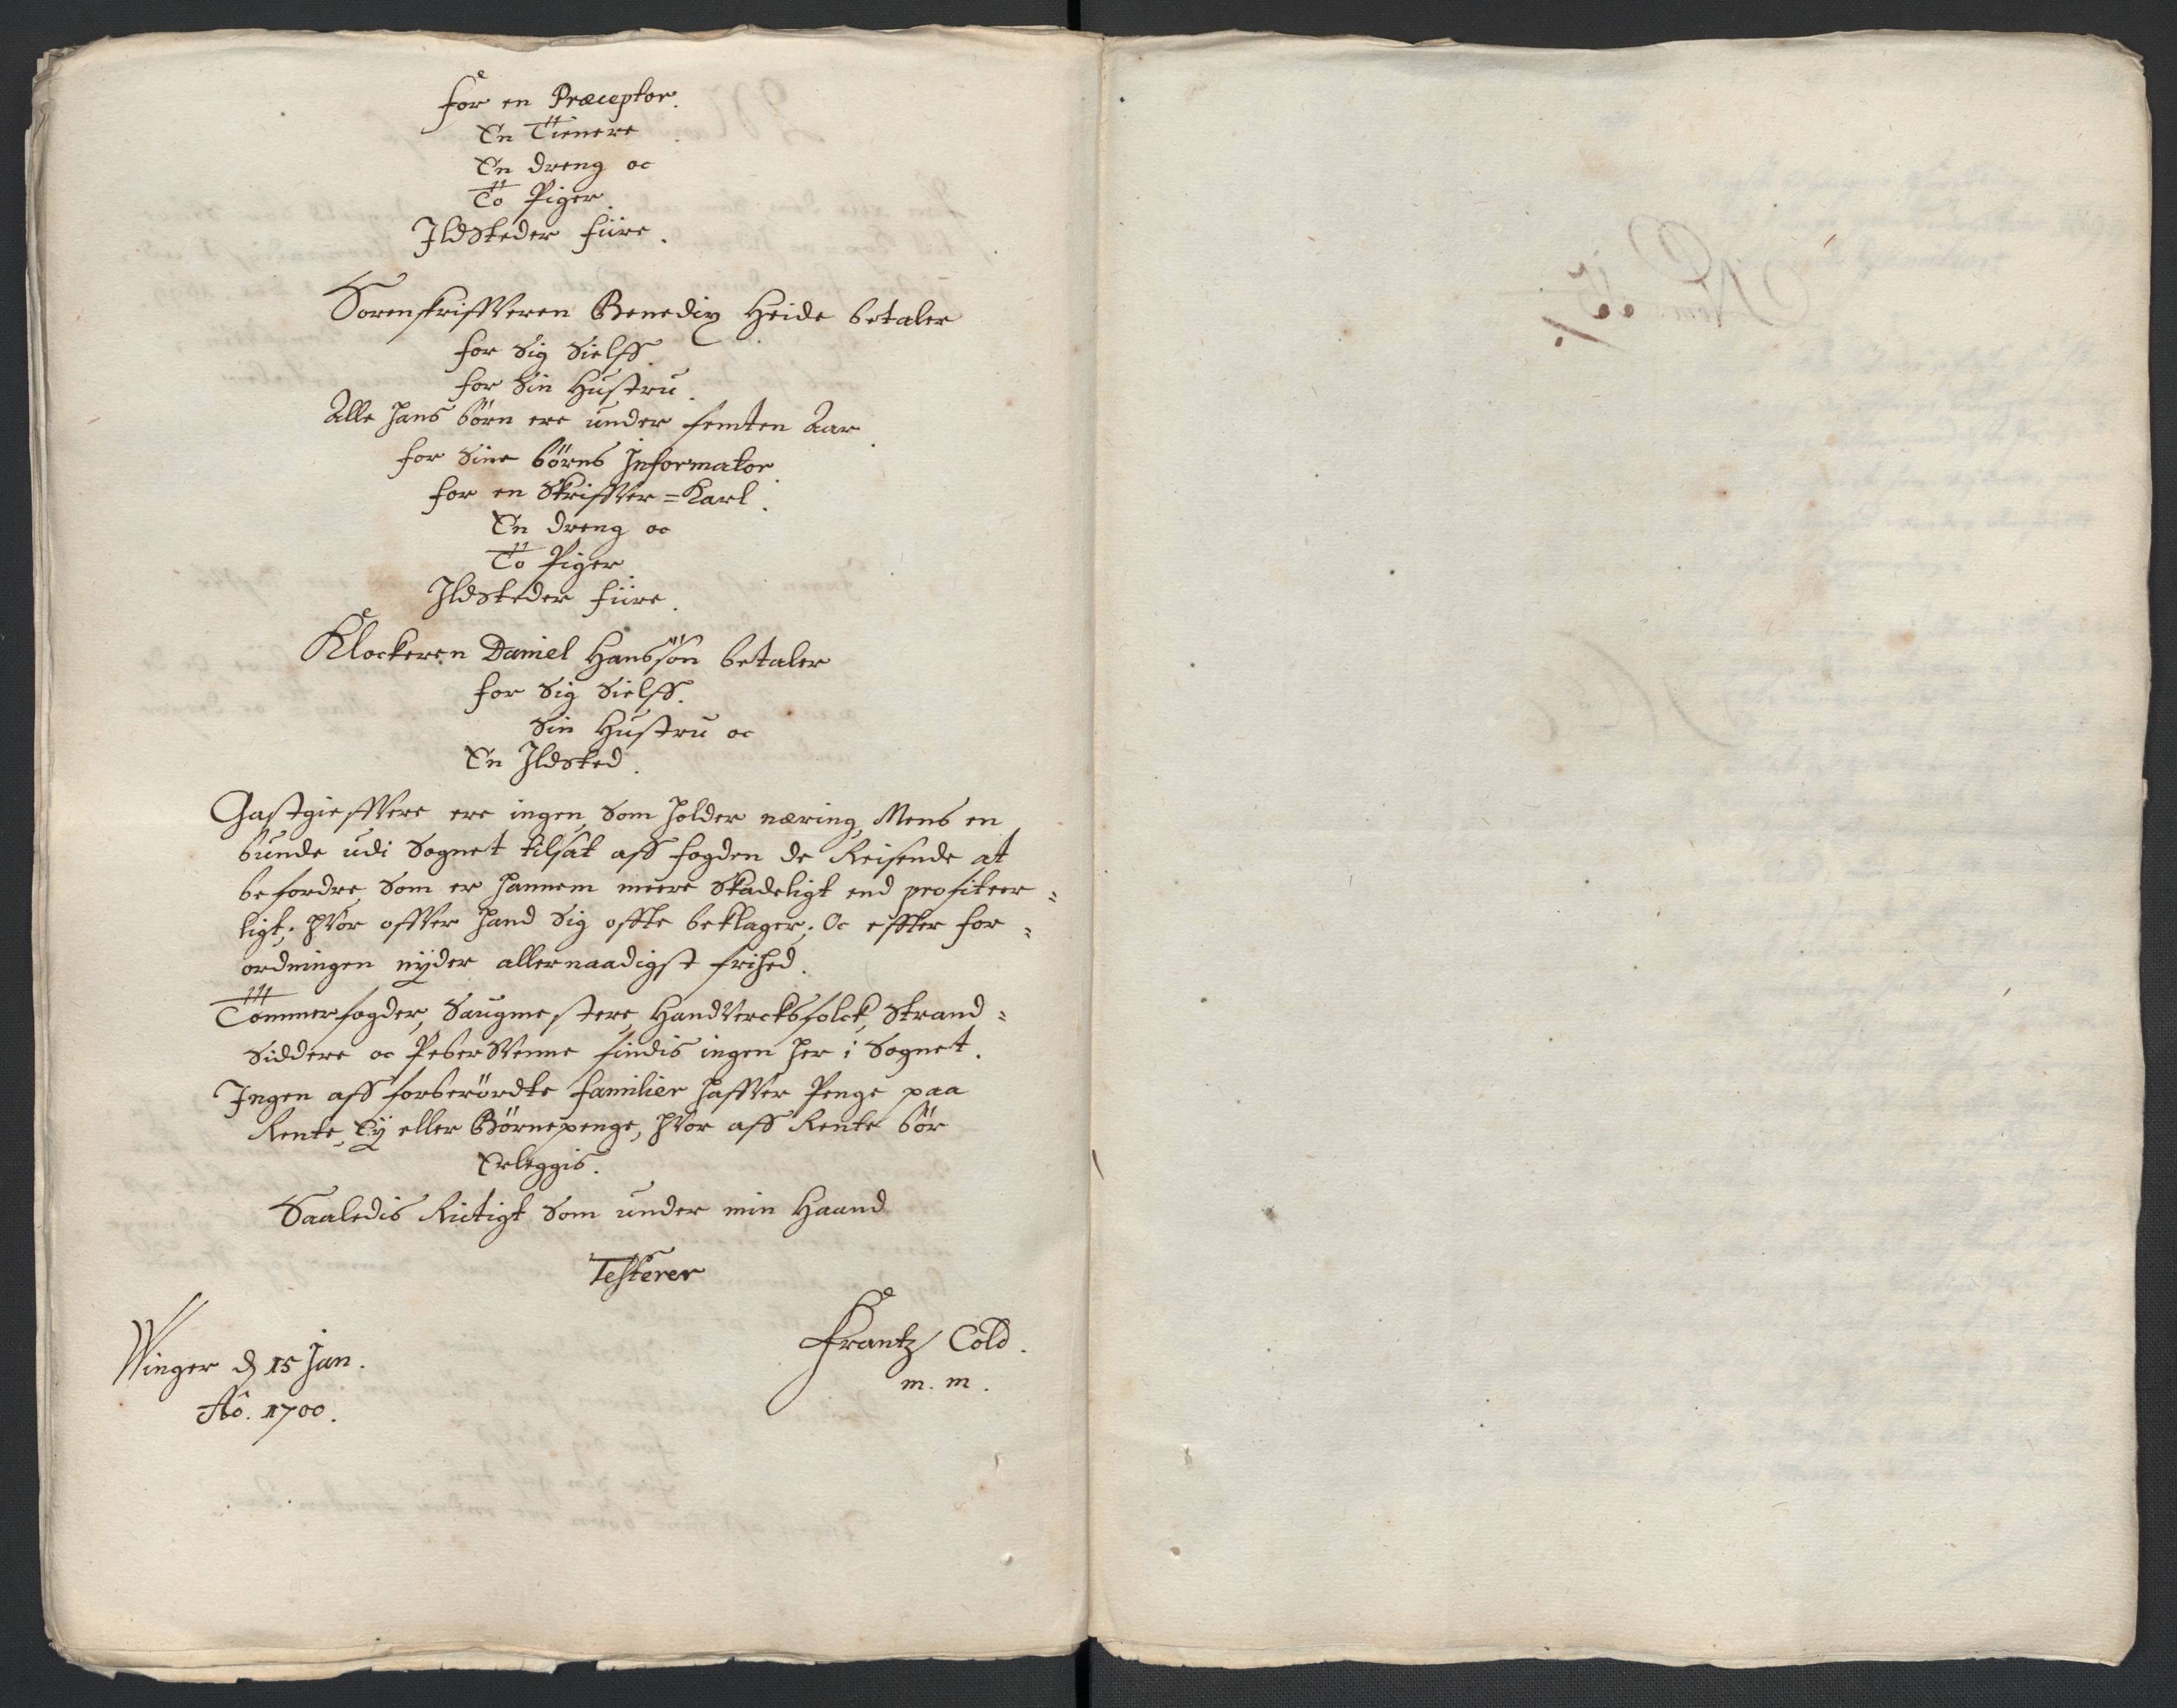 for en Præceptor.
En Tienere
En dreng oc
To Piger.
Ildsteder fiire.
Sorenskriffveren Benedix Heide betaler
for Sig Sielff.
for Sin Hustru.
Alle hans børn ere under femten Aar.
for Sine børns Informator.
for en Skriffver=Karl.
En dreng oc
To Piger.
Ildsteder fiire.
Klockeren Daniel Hanssøn betaler
for Sig Sielff.
Sin Hustru oc
En Ildsted.
Gastgieffvere ere ingen, Som holder næring, Mens en
bunde udi Sognet tilsat aff fogden de Reisende at
befordre, Som er hannem meere Skadeligt end profiteer=
ligt; hvor offver hand Sig offte beklager; Oc effter for=
ordningen nÿder allernaadigst frihed.
Tømmerfogder, Saugmestere, Handvercksfolck, Strand=
Siddere oc Pebersvenne findis ingen her i Sognet.
Ingen aff forberørdte familier haffver Penge paa
Rente, Ey eller Børnepenge, hvor aff Rente bør
Erleggis.
Saaledis Rictigt Som under min Haand
Testerer
Frantz Cold.
m. m.
Winger d 15 Jan.
Aô. 1700.